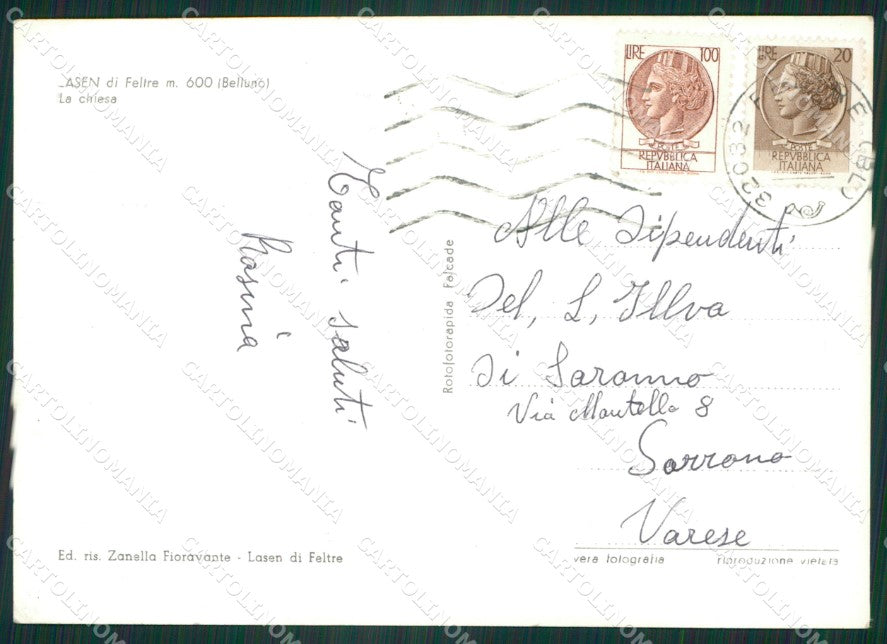 LASEN di Feltre m. 600 (Belluno)
La chiesa
LIRE 100
POSTE
REPVBBLICA
ITALIANA
LIRE 20
POSTE
REPVBBLICA
ITALIANA
32032 FELTRE (BL)
Tanti saluti
Rosina
Rotofotorapida Falcade
Alle Dipendenti
Del, L, Illva
Di Saronno
Via Mantello 8
Sarrono
Varese
Ed. ris. Zanella Fioravante - Lasen di Feltre
vera fotografia riproduzione vietata
CARTOLINOMANIA